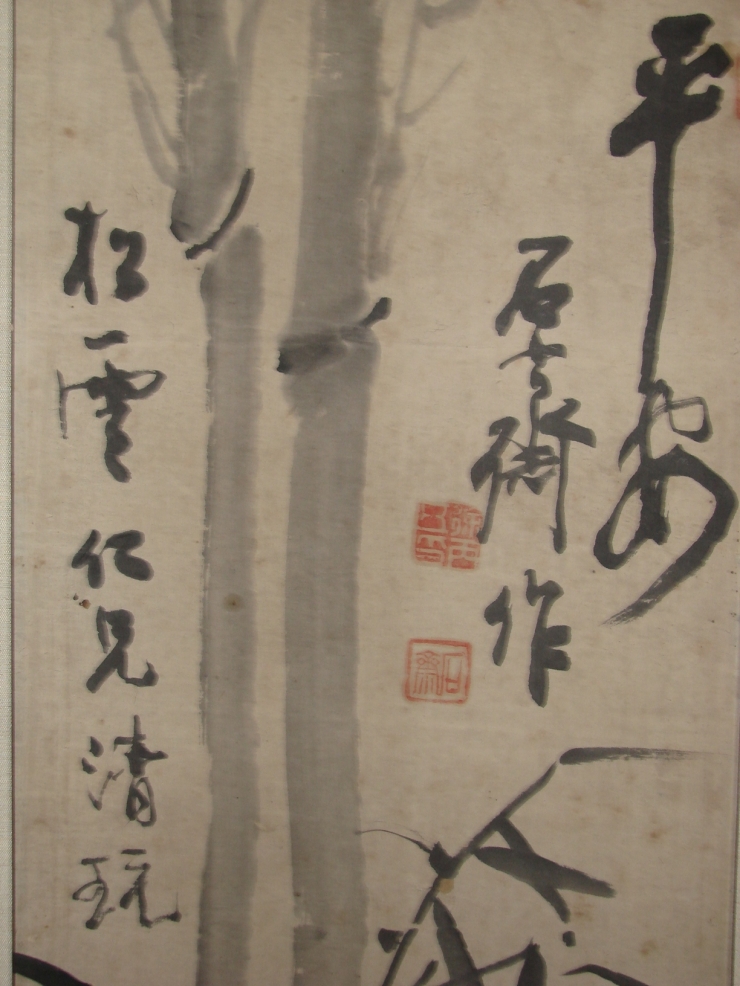 平安
石斋作
松雲仁兄清玩
石齋